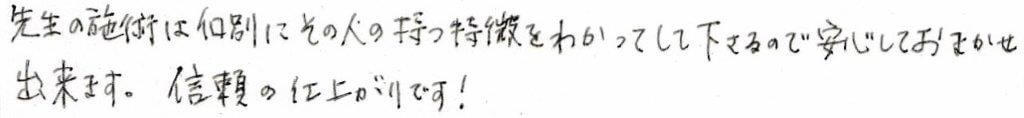 先生の施術は個別にその人の持つ特徴をわかってして下さるので安心しておまかせ
出来ます。信頼の仕上がりです!